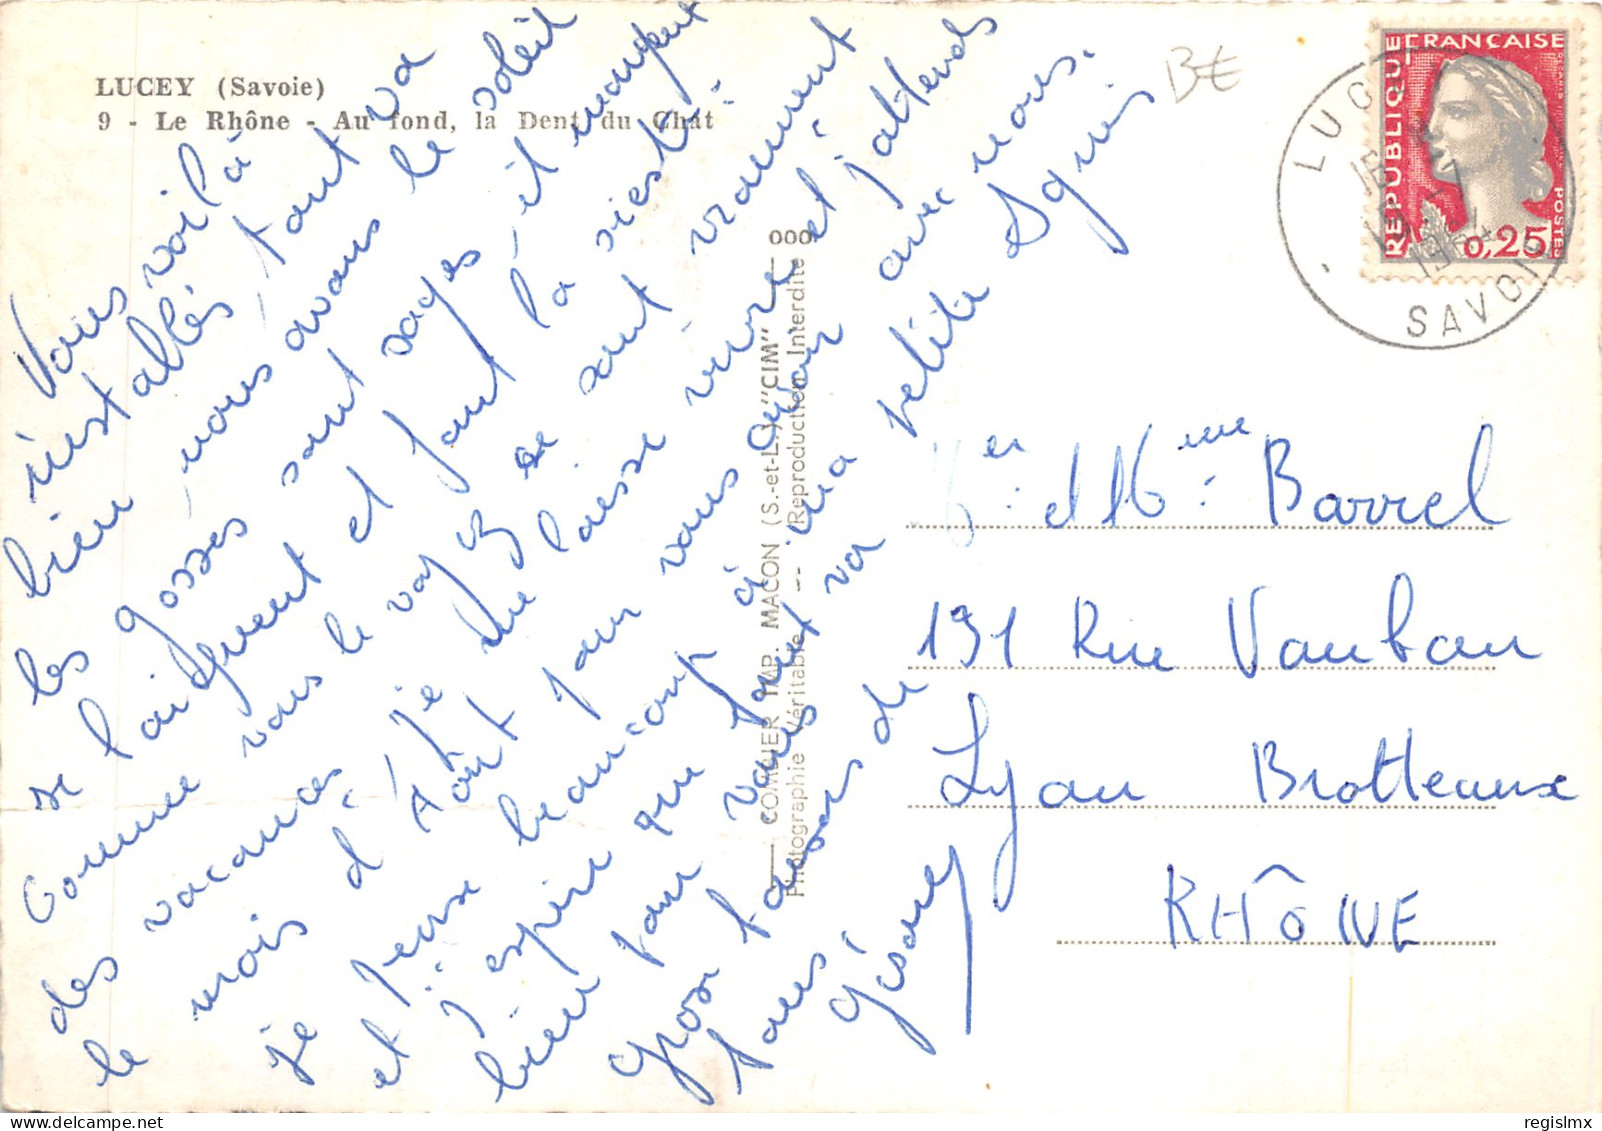 LUCEY (Savoie)
9 - Le Rhône - Au fond, la Dent du Chat
Vous voilà
installés, tout va
bien, nous avons le soleil
les gosses sont sages, il mangent
se laiquent et font la sieste.
Comme vous le voyez se sont vraiment
des vacances, je me laisse vivre et j'attends
le mois d'Août pour vous avoir avec nous.
je pense beaucoup à ma petite Sylvie
et j'espère que tout va
bien pour vous
gros baisers de
tous.
COMBIER IMP. MACON (S.-et-L.) "CIM"
Photographie Véritable --- (Reproduction Interdite)
000
BE
REPUBLIQUE FRANÇAISE
POSTES
0,25
LUCEY
16 -7
19
SAVOIE
et Mme Barrel
191 Rue Vauban
Lyon Brotteaux
RHÔNE
regislmx